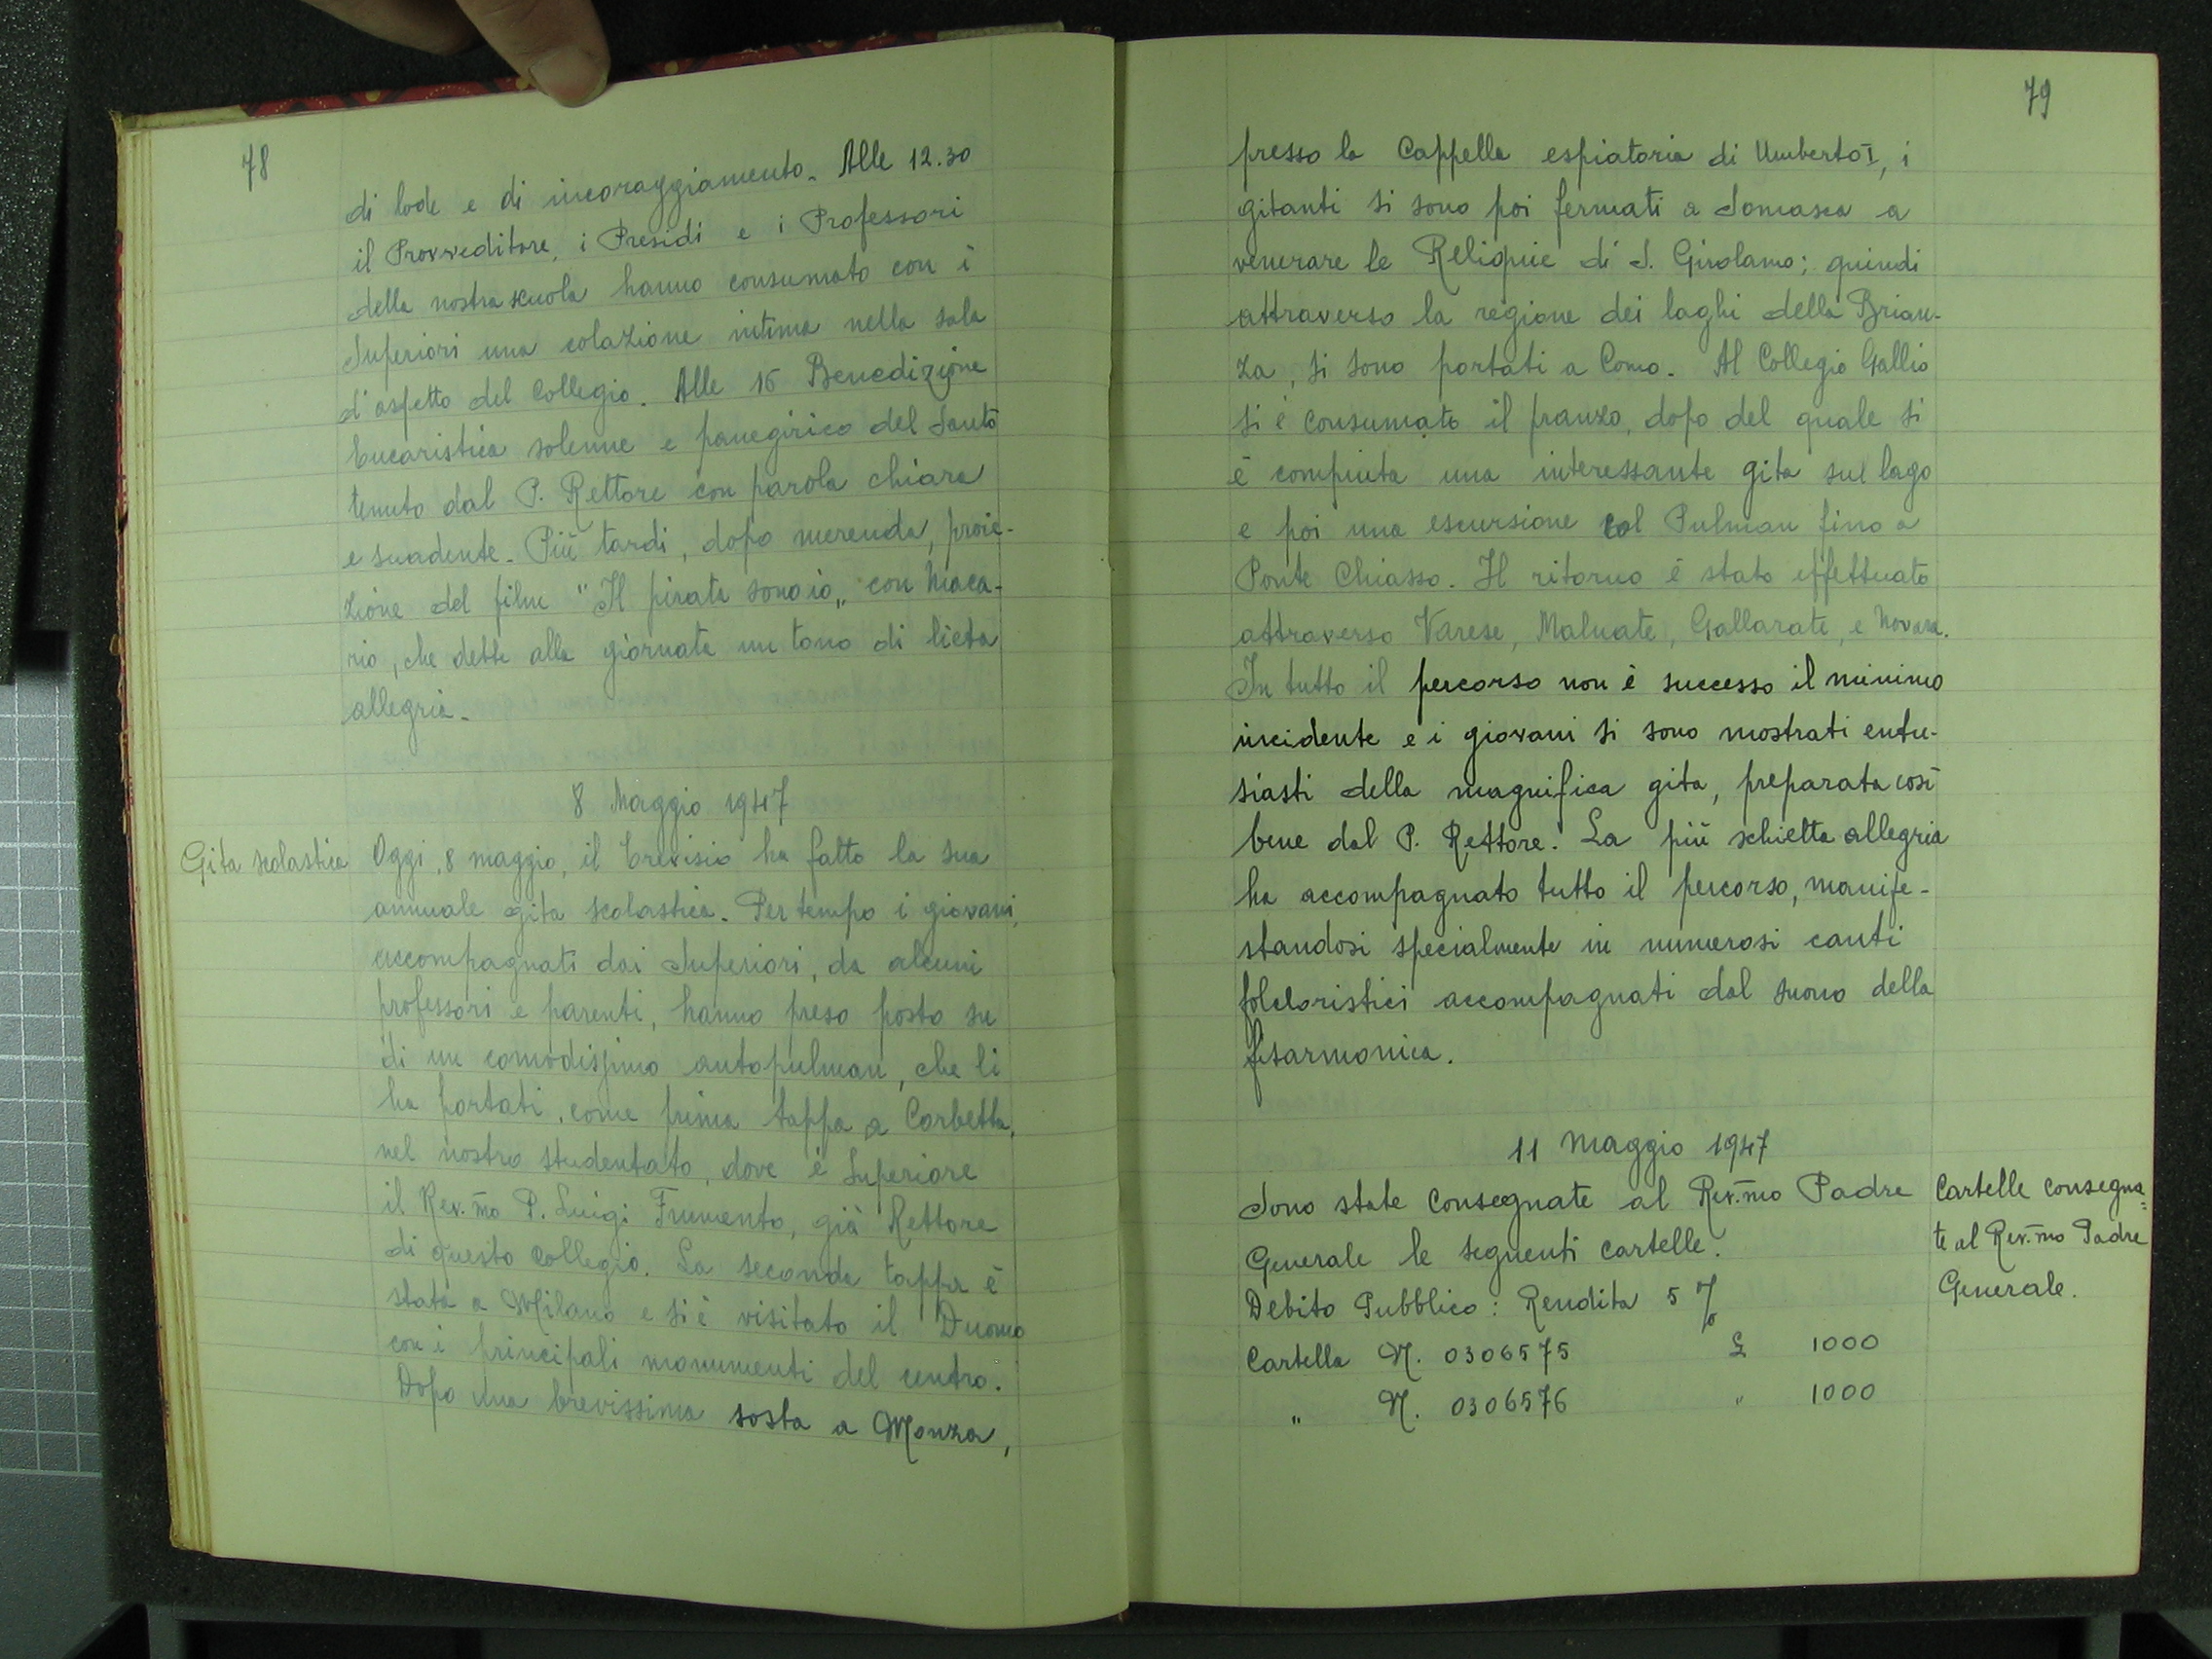 78
di lode e di incoraggiamento. Alle 12.30
il Provveditore, i Presidi e i Professori
della nostra scuola hanno consumato con i
Superiori una colazione intima nella sala
d'aspetto del Collegio. Alle 16 Benedizione
Eucaristica solenne e panegirico del Santo
tenuto dal P. Rettore con parola chiara
e suadente. Più tardi, dopo merenda, proie-
zione del film "Il pirata sono io„ con Maca-
rio, che dette alla giornata un tono di lieta
allegria.
8 Maggio 1947
Gita scolastica
Oggi, 8 maggio, il Trevisio ha fatto la sua
annuale gita scolastica. Per tempo i giovani,
accompagnati dai Superiori, da alcuni
professori e parenti, hanno preso posto su
di un comodissimo autopulman, che li
ha portati, come prima tappa a Corbetta,
nel nostro studentato, dove è Superiore
il Rev.mo P. Luigi Frumento, già Rettore
di questo Collegio. La seconda tappa è
stata a Milano e si è visitato il Duomo
con i principali monumenti del centro.
Dopo una brevissima sosta a Monza,
79
presso la Cappella espiatoria di Umberto I, i
gitanti si sono poi fermati a Somasca a
venerare le Reliquie di S. Girolamo; quindi
attraverso la regione dei laghi della Brian-
za, si sono portati a Como. Al Collegio Gallio
si è consumato il pranzo, dopo del quale si
è compiuta una interessante gita sul lago
e poi una escursione col Pulman fino a
Ponte Chiasso. Il ritorno è stato effettuato
attraverso Varese, Malnate, Gallarate, e Novara.
In tutto il percorso non è successo il minimo
incidente e i giovani si sono mostrati entu-
siasti della magnifica gita, preparata così
bene dal P. Rettore. La più schietta allegria
ha accompagnato tutto il percorso, manife-
standosi specialmente in numerosi canti
folcloristici accompagnati dal suono della
fisarmonica.
11 maggio 1947
Sono state consegnate al Rev.mo Padre
Generale le seguenti cartelle.
Debito Pubblico: Rendita 5 %
Cartella N. 0306575 £ 1000
„ N. 0306576 " 1000
Cartelle consegna=
te al Rev.mo Padre
Generale.